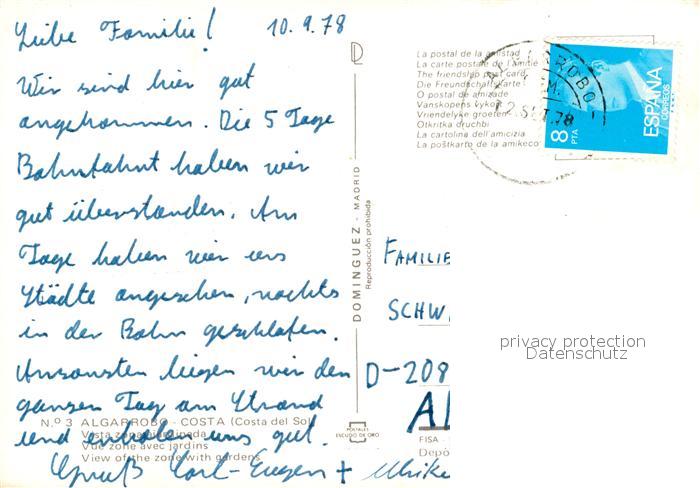 Liebe Familie! 10.9.78
Wir sind hier gut
angekommen. Die 5 Tage
Bahnfahrt haben wir
gut überstanden. Am
Tage haben wir uns
Städte angesehen, nachts
in der Bahn geschlafen.
Ansonsten liegen wir den
ganzen Tag am Strand
und erholen uns gut.
Gruß Karl-Eugen + Ulrike
N.º 3 ALGARROBO - COSTA (Costa del Sol)
Vista zona ajardinada
Vue zone avec jardins
View of the zone with gardens
DOMINGUEZ - MADRID
Reproducción prohibida
POSTALES
ESCUDO DE ORO
La postal de la amistad
La carte postale de l'amitié
The friendship post card
Die Freundschaftskarte
O postal de amizade
Vanskopens kykort
Vriendelyke groeten
Otkritka druchbi
La cartolina dell'amicizia
La poŝtkarto de la amikeco
12 SET. 78
8 PTA
ESPAÑA
CORREOS
FAMILIE
SCHW
D-208
FISA
Depó
privacy protection
Datenschutz